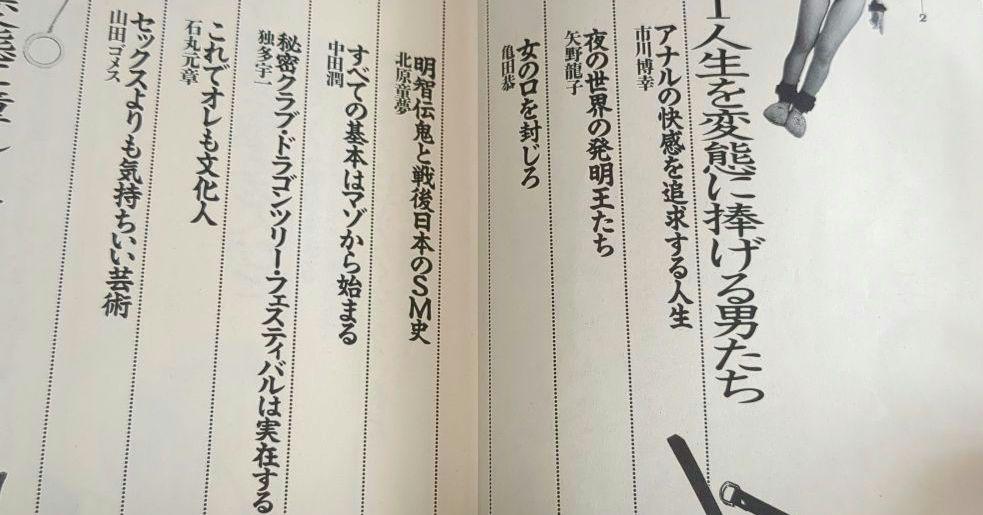 2
人生を変態に捧げる男たち
アナルの快感を追求する人生
市川博幸
夜の世界の発明王たち
矢野龍子
女の口を封じろ
亀田恭
明智伝鬼と戦後日本のSM史
北原童夢
すべての基本はマゾから始まる
中田潤
秘密クラブ・ドラゴンツリー・フェスティバルは実在する
独多宇一
これでオレも文化人
石丸元章
セックスよりも気持ちいい芸術
山田ゴメス